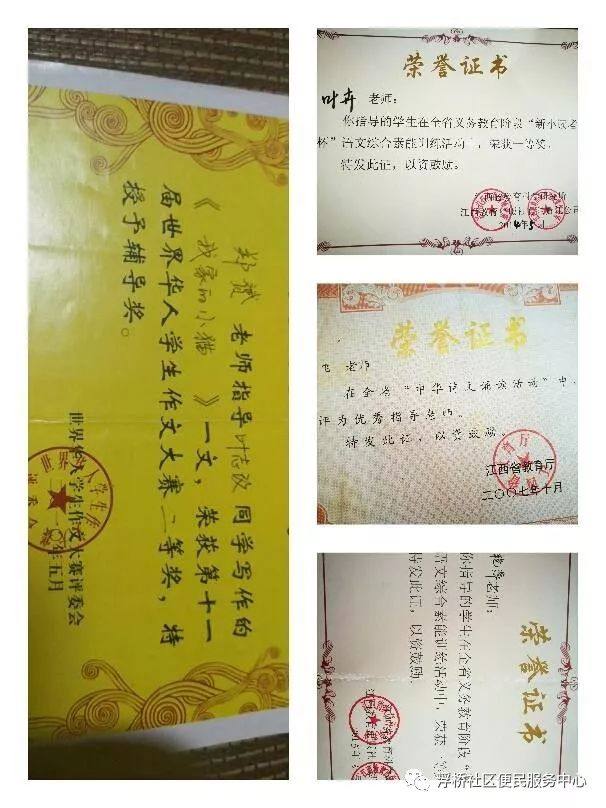 郑赟 老师指导叶志汝同学写作的
《我家的小猫》一文，荣获第十一
届世界华人学生作文大赛二等奖，特
授予辅导奖。
世界华人学生作文大赛评委会
年五月
荣誉证书
叶卉 老师：
你指导的学生在全省义务教育阶段“新小
杯”语文综合素能训练活动中，荣获一等奖。
特发此证，以资鼓励。
荣誉证书
老师
在全省“中华诗文诵读活动”中，
评为优秀指导老师。
特发此证，以资鼓励。
江西省教育厅
二〇〇七年十月
荣誉证书
老师：
你指导的学生在全省义务教育阶段“
语文综合素能训练活动中，荣获一等
特发此证，以资鼓励。
浮桥社区便民服务中心